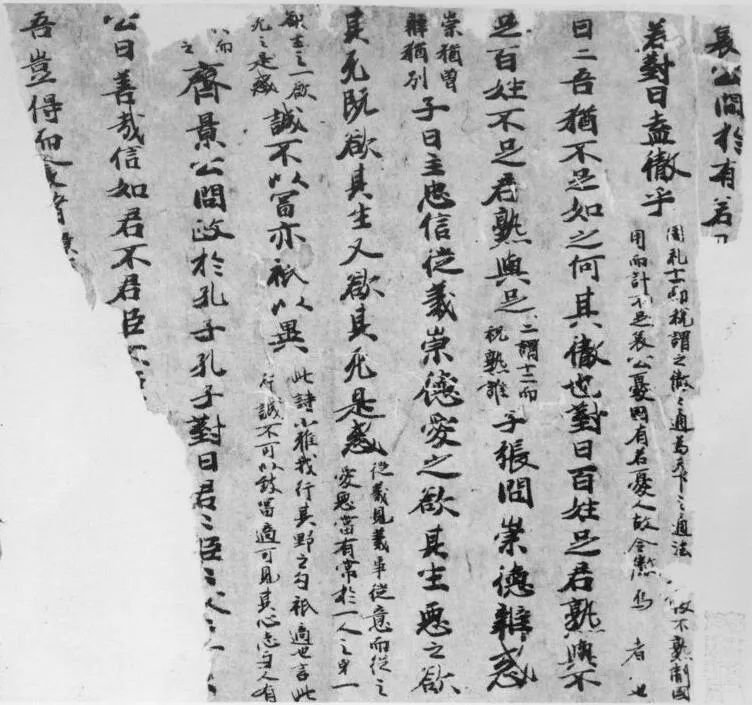 哀公問於有若
若對曰盍徹乎
周礼十一而稅謂之徹〻通為天下之通法
用而計不足哀公憂因有若憂人故令懃焉者也
曰二吾猶不足如之何其徹也對曰百姓足君熟與不
足百姓不足君熟與足
二謂十二而
稅熟誰
子張問崇德辨惑
崇猶曽
辨猶別
子曰主忠信從義崇德愛之欲其生惡之欲
其死既欲其生又欲其死是惑
從義見義事從意而從之
愛惡當有常於一人之身一
欲生之一欲
死之是惑
誠不以富亦祇以異
此詩小雅我行其野之勾祇適也言此
行誠不可以致富適可見其心志与人有
而
之
齊景公問政於孔子孔子對曰君〻臣〻父〻
公曰善哉信如君不君臣不
吾豈得而食諸